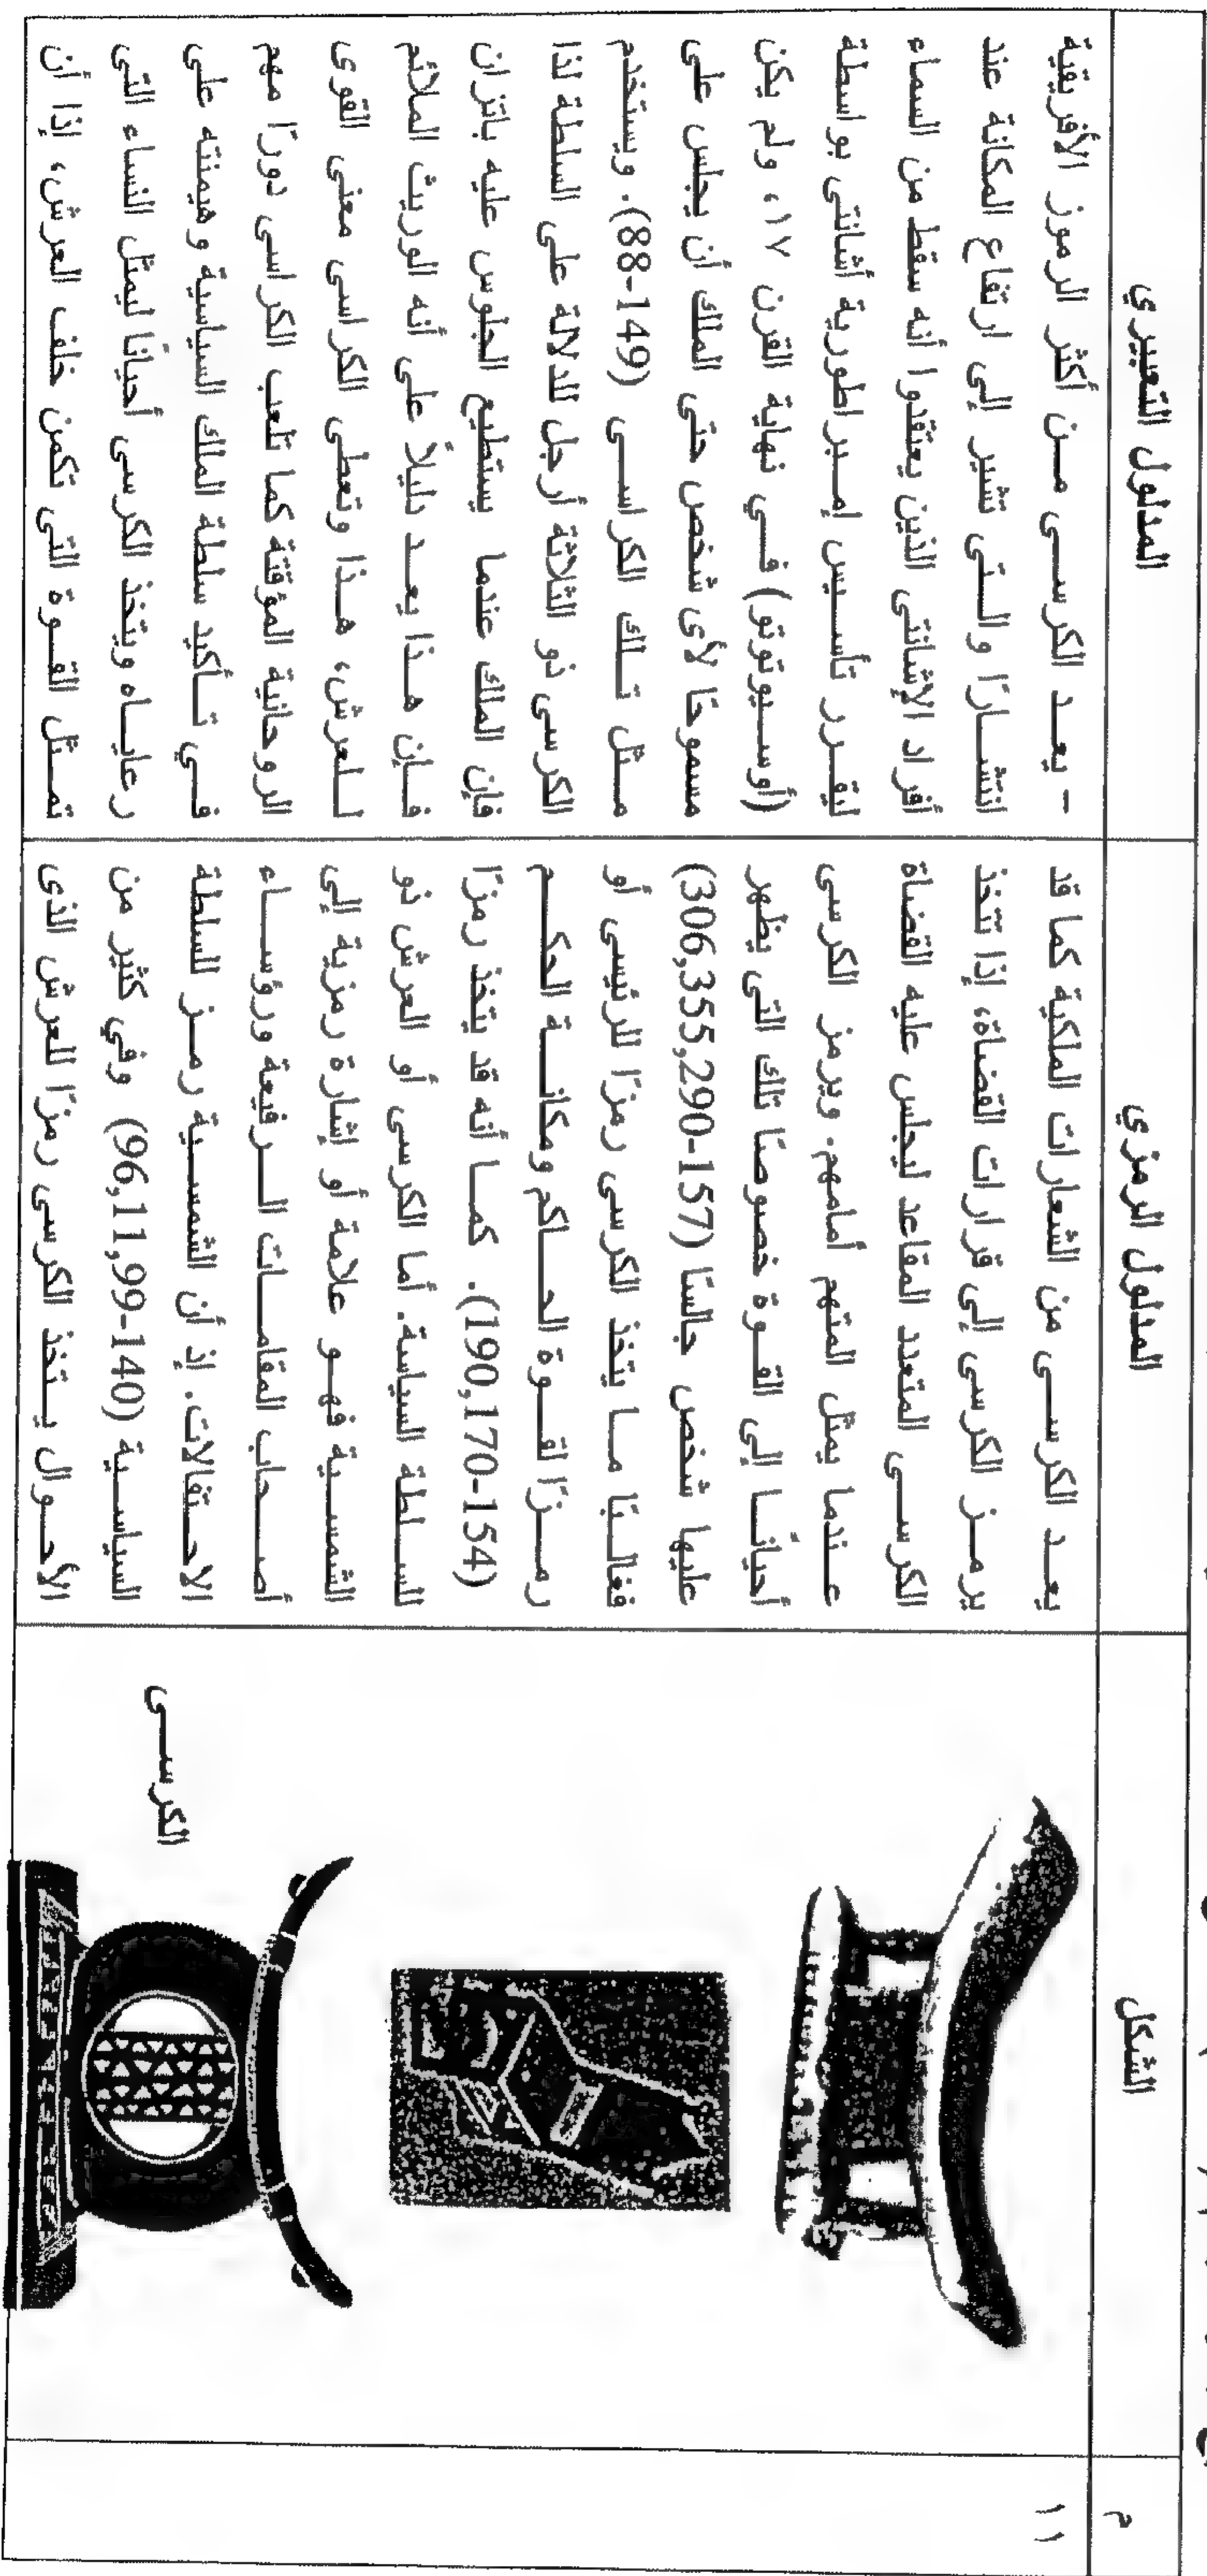 م
الشكل
المدلول الرمزي
المدلول التعبيري
١١
الكرسى
يعد الكرسى من الشعارات الملكية كما قد
يرمز الكرسى إلى قرارات القضاة، إذا تتخذ
الكرسى المتعدد المقاعد ليجلس عليه القضاة
عندما يمثل المتهم أمامهم. ويرمز الكرسى
أحيانًا إلى القوة خصوصًا تلك التى يظهر
عليها شخص جالسًا (306,355,290-157)
فغالبًا ما يتخذ الكرسى رمزًا للرئيسى أو
رمزًا لقوة الحاكم ومكانة الحكم
(190,170-154). كما أنه قد يتخذ رمزًا
للسلطة السياسة. أما الكرسى أو العرش ذو
الشمسية فهو علامة أو إشارة رمزية إلى
أصحاب المقامات الرفيعة ورؤساء
الاحتفالات. إذ أن الشمسية رمز للسلطة
السياسية (96,11,99-140) وفي كثير من
الأحوال يتخذ الكرسى رمزًا للعرش الذى
- يعد الكرسى من أكثر الرموز الأفريقية
انتشارًا والتى تشير إلى ارتفاع المكانة عند
أفراد الإشانتى الذين يعتقدوا أنه سقط من السماء
ليقرر تأسيس إمبراطورية أشانتى بواسطة
(أوسيوتوتو) في نهاية القرن ١٧، ولم يكن
مسموحًا لأى شخص حتى الملك أن يجلس على
مثل تلك الكراسى (88-149). ويستخدم
الكرسى ذو الثلاثة أرجل للدلالة على السلطة لذا
فإن الملك عندما يستطيع الجلوس عليه باتزان
فإن هذا يعد دليلاً على أنه الوريث الملائم
للعرش، هذا وتعطى الكراسى معنى القوى
الروحانية المؤقتة كما تلعب الكراسى دورًا مهم
في تأكيد سلطة الملك السياسية وهيمنته على
رعاياه ويتخذ الكرسى أحيانًا ليمثل النساء التى
تمثل القوة التى تكمن خلف العرش، إذا أن